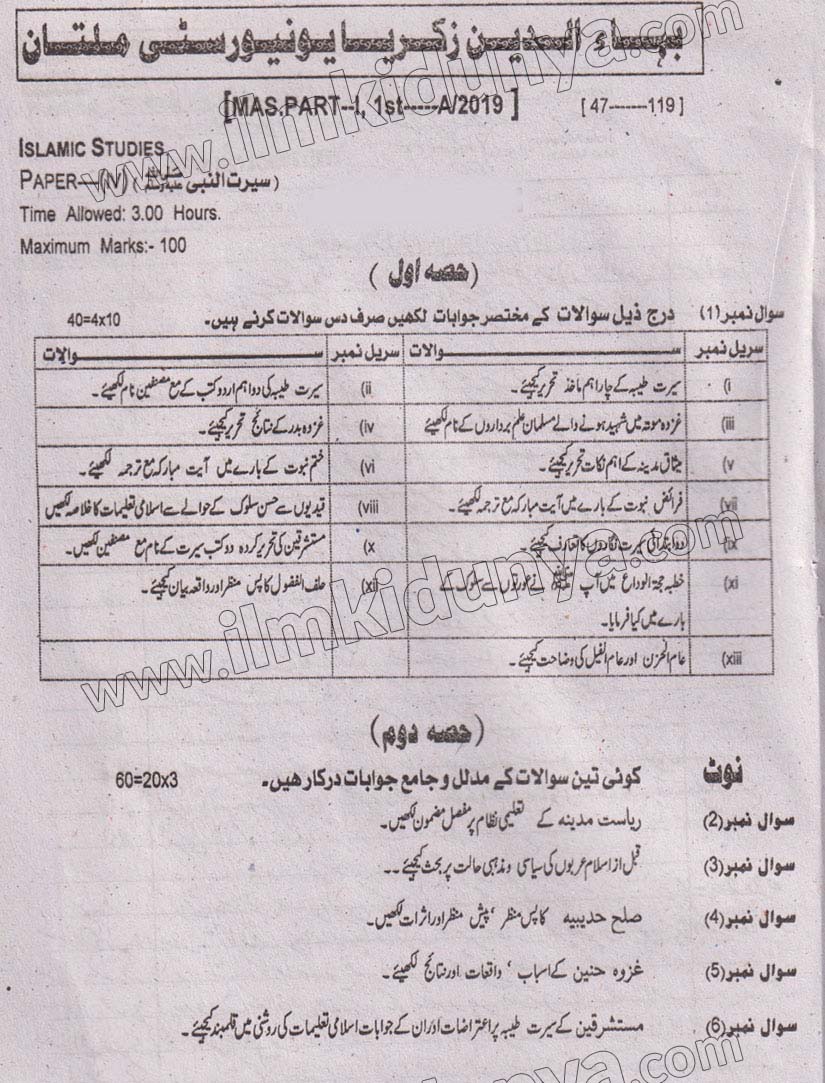 بہاء الدین زکریا یونیورسٹی ملتان
[MAS.PART--I, 1st-----A/2019 ] [ 47-------119 ]
ISLAMIC STUDIES
PAPER—(IV) (سیرت النبی ﷺ)
Time Allowed: 3.00 Hours.
Maximum Marks:- 100
(حصہ اول)
سوال نمبر (1) درج ذیل سوالات کے مختصر جوابات لکھیں صرف دس سوالات کرنے ہیں۔ 40=4x10
سریل نمبر سوالات سریل نمبر سوالات
(i سیرت طیبہ کے چار اہم ماخذ تحریر کیجیئے۔ (ii سیرت طیبہ کی دو اہم اردو کتب کے مع مصنفین نام لکھیئے۔
(iii غزوہ موتہ میں شہید ہونے والے مسلمان علم برداروں کے نام لکھیئے (iv غزوہ بدر کے نتائج تحریر کیجیئے۔
(v میثاق مدینہ کے اہم نکات تحریر کیجیئے۔ (vi ختم نبوت کے بارے میں آیت مبارکہ مع ترجمہ لکھیئے۔
(vii فرائض نبوت کے بارے میں آیت مبارکہ مع ترجمہ لکھیئے۔ (viii قیدیوں سے حسن سلوک کے حوالے سے اسلامی تعلیمات کا خلاصہ لکھیں
(ix دو ابتدائی سیرت نگاروں کا تعارف لکھیئے۔ (x مستشرقین کی تحریر کردہ دو کتب سیرت کے نام مع مصنفین لکھیں۔
(xi خطبہ حجۃ الوداع میں آپ ﷺ نے عورتوں سے سلوک کے (xii حلف الفضول کا پس منظر اور واقعہ بیان کیجیئے۔
بارے میں کیا فرمایا۔
(xiii عام الحزن اور عام الفیل کی وضاحت کیجیئے۔
(حصہ دوم)
نوٹ کوئی تین سوالات کے مدلل و جامع جوابات درکار ہیں۔ 60=20x3
سوال نمبر (2) ریاست مدینہ کے تعلیمی نظام پر مفصل مضمون لکھیں۔
سوال نمبر (3) قبل از اسلام عربوں کی سیاسی و مذہبی حالت پر بحث کیجیئے۔۔
سوال نمبر (4) صلح حدیبیہ کا پس منظر ، پیش منظر اور اثرات لکھیں۔
سوال نمبر (5) غزوہ حنین کے اسباب ، واقعات اور نتائج لکھیئے۔
سوال نمبر (6) مستشرقین کے سیرت طیبہ پر اعتراضات اور ان کے جوابات اسلامی تعلیمات کی روشنی میں قلمبند کیجیئے۔
www.ilmkidunya.com
www.ilmkidunya.com
www.ilmkidunya.com